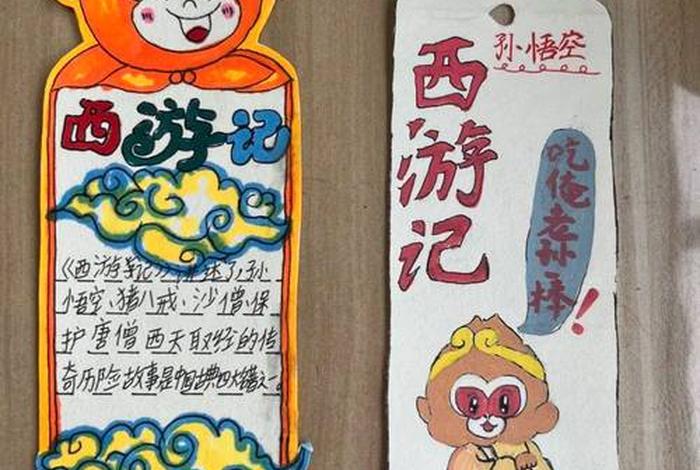 西游记
《西游记》讲述了孙
悟空、猪八戒、沙僧、保
护唐僧西天取经的传
奇历险故事是中国古典四大名著之一。
孙悟空
西游记
吃俺老孙一棒！